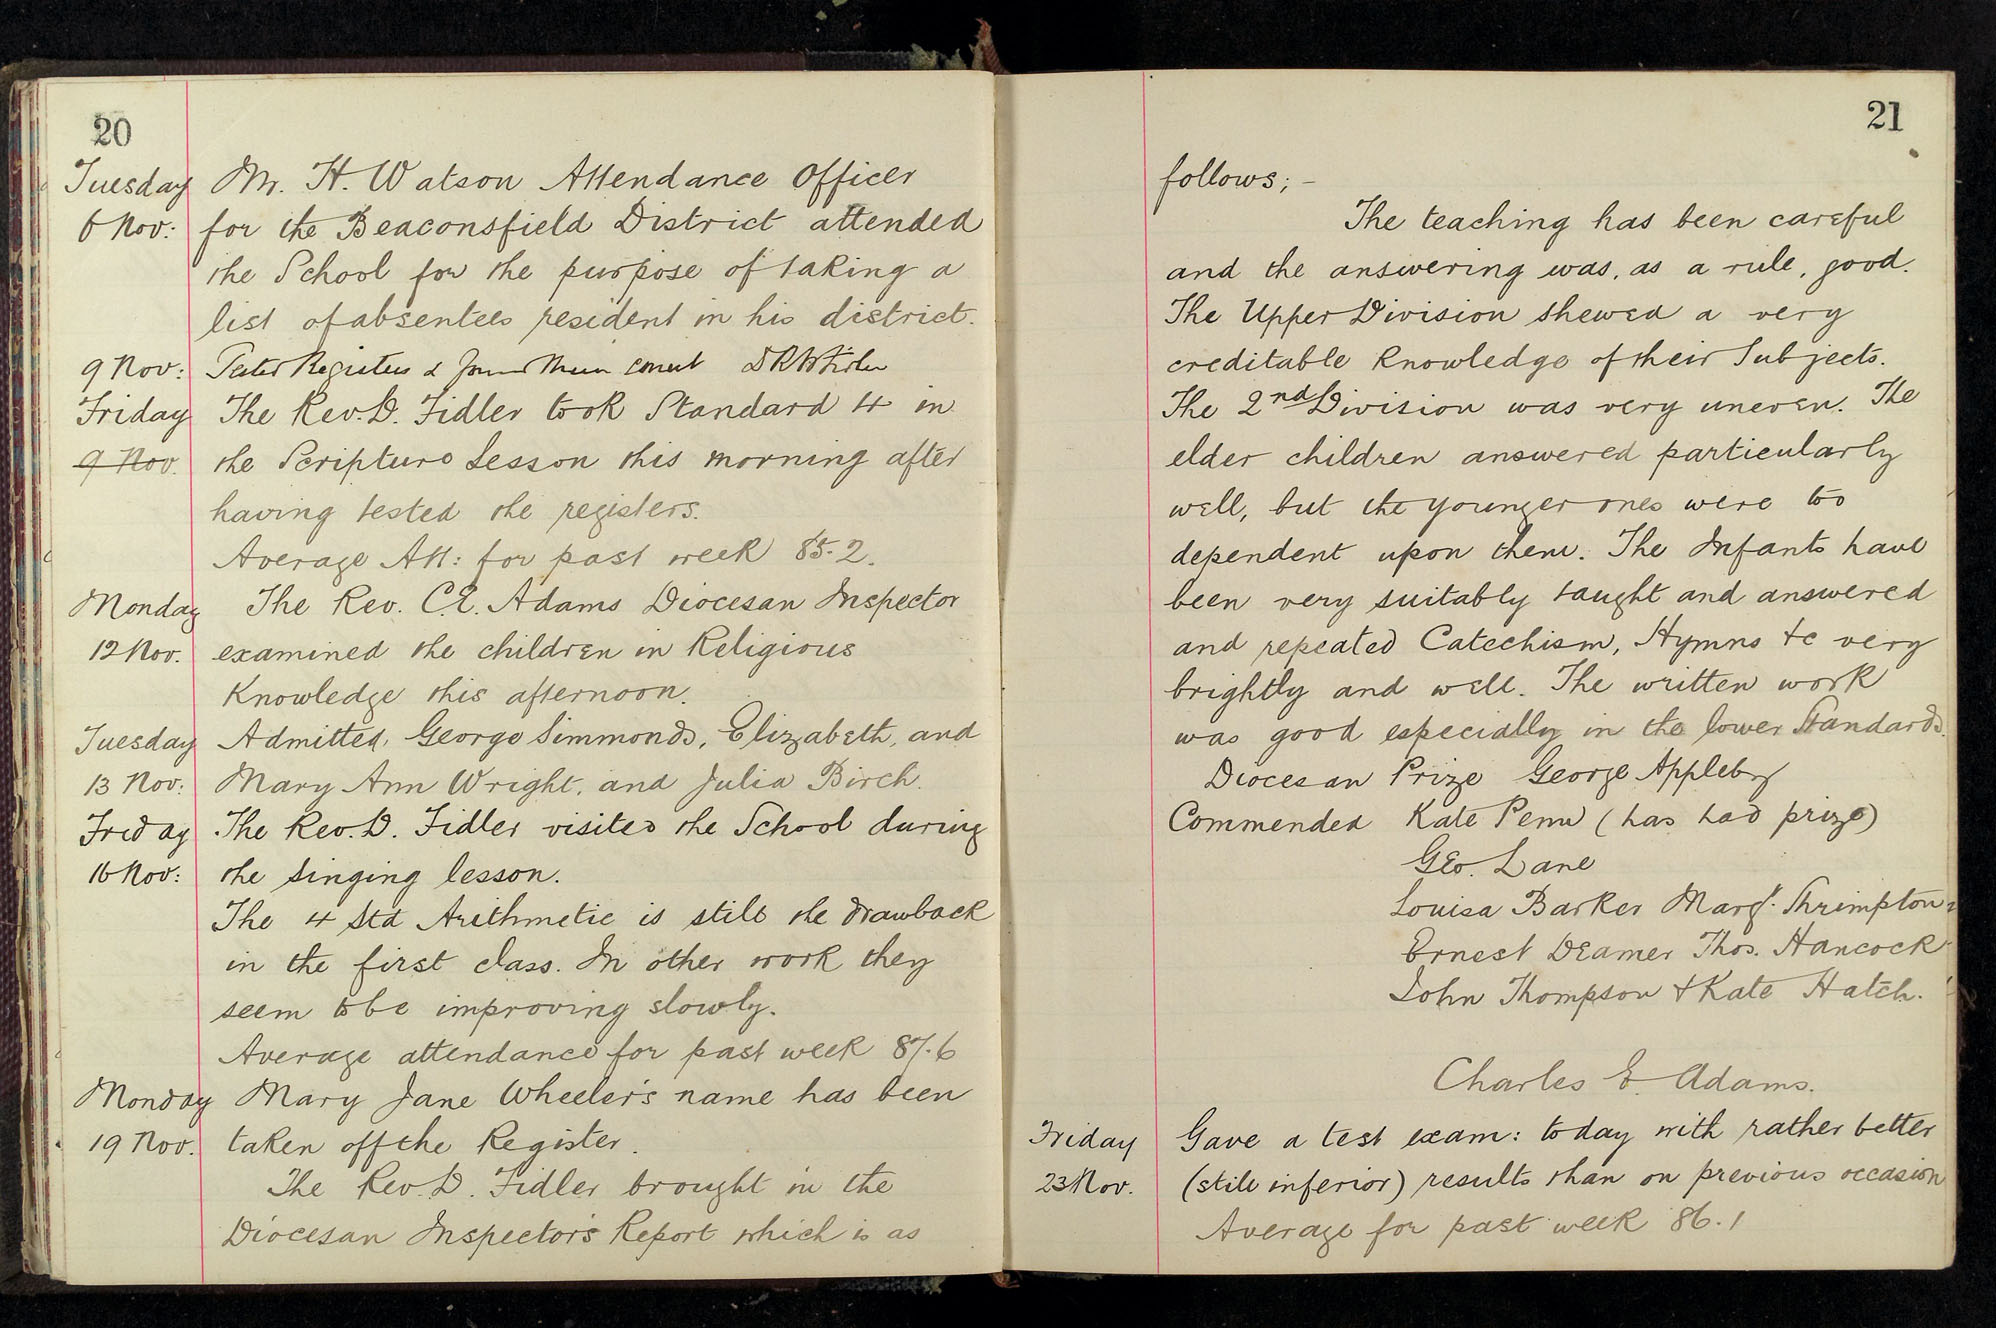 20
Tuesday Mr. H. Watson Attendance Officer
6 Nov: for the Beaconsfield District attended
the School for the purpose of taking a
list of absentees resident in his district.
9 Nov: Tested Registers & found them correct D R W Fidler
Friday The Rev. D. Fidler took Standard 4 in
9 Nov. the Scripture Lesson this morning after
having tested the registers.
Average Att: for past week 85.2.
Monday The Rev. C.E. Adams Diocesan Inspector
12 Nov. examined the children in Religious
Knowledge this afternoon.
Tuesday Admitted, George Simmonds, Elizabeth, and
13 Nov: Mary Ann Wright, and Julia Birch.
Friday The Rev. D. Fidler visited the School during
16 Nov: the singing lesson.
The 4 Std Arithmetic is still the drawback
in the first class. In other work they
seem to be improving slowly.
Average attendance for past week 87.6
Monday Mary Jane Wheeler's name has been
19 Nov. taken off the Register.
The Rev. D. Fidler brought in the
Diocesan Inspector's Report which is as
21
follows; –
The teaching has been careful
and the answering was, as a rule, good.
The Upper Division shewed a very
creditable knowledge of their Subjects.
The 2nd Division was very uneven. The
elder children answered particularly
well, but the younger ones were too
dependent upon them. The Infants have
been very suitably taught and answered
and repeated Catechism, Hymns &c very
brightly and well. The written work
was good especially in the lower Standards.
Diocesan Prize George Appleby
Commended Kate Penn (has had prize)
Geo. Lane
Louisa Barker Margt. Thrimpton
Ernest Deamer Thos. Hancock
John Thompson & Kate Hatch.
Charles E Adams.
Friday Gave a test exam: today with rather better
23 Nov. (still inferior) results than on previous occasion
Average for past week 86.1